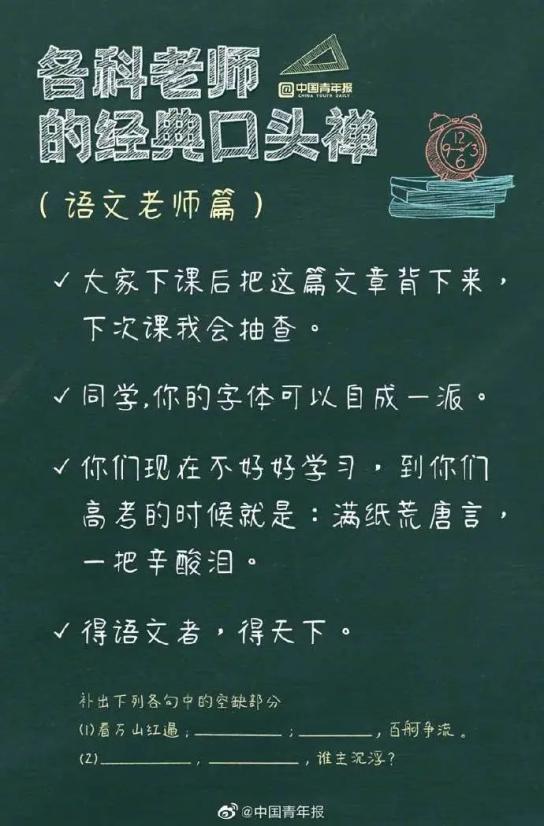 各科老师
@中国青年报
CHINA YOUTH DAILY
的经典口头禅
12
9 3
6
(语文老师篇)
✓大家下课后把这篇文章背下来，
下次课我会抽查。
✓同学,你的字体可以自成一派。
✓你们现在不好好学习，到你们
高考的时候就是：满纸荒唐言，
一把辛酸泪。
✓得语文者，得天下。
补出下列各句中的空缺部分
(1)看万山红遍，________；________，百舸争流。
(2)________，________，谁主沉浮？
@中国青年报